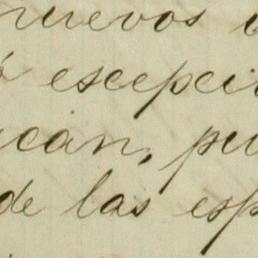 nuevos
escepci
can, pu
de las esp